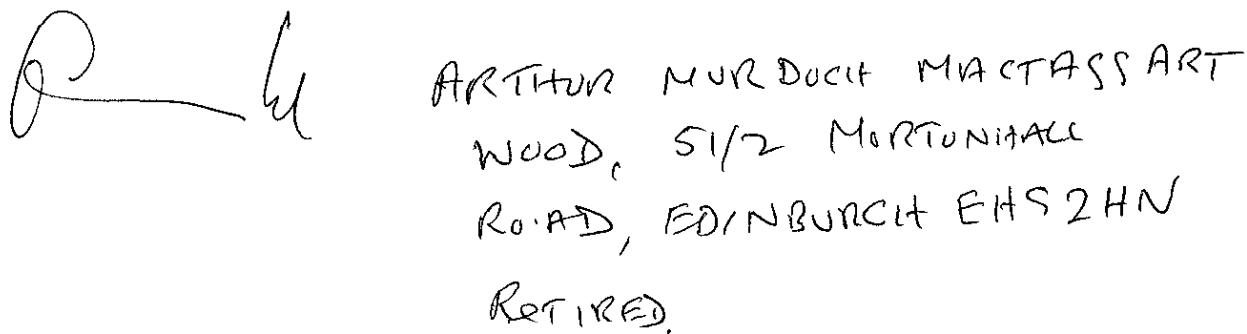 ARTHUR MURDOCH MACTAGGART
WOOD, 51/2 MORTONHALL
ROAD, EDINBURGH EH9 2HN
RETIRED.